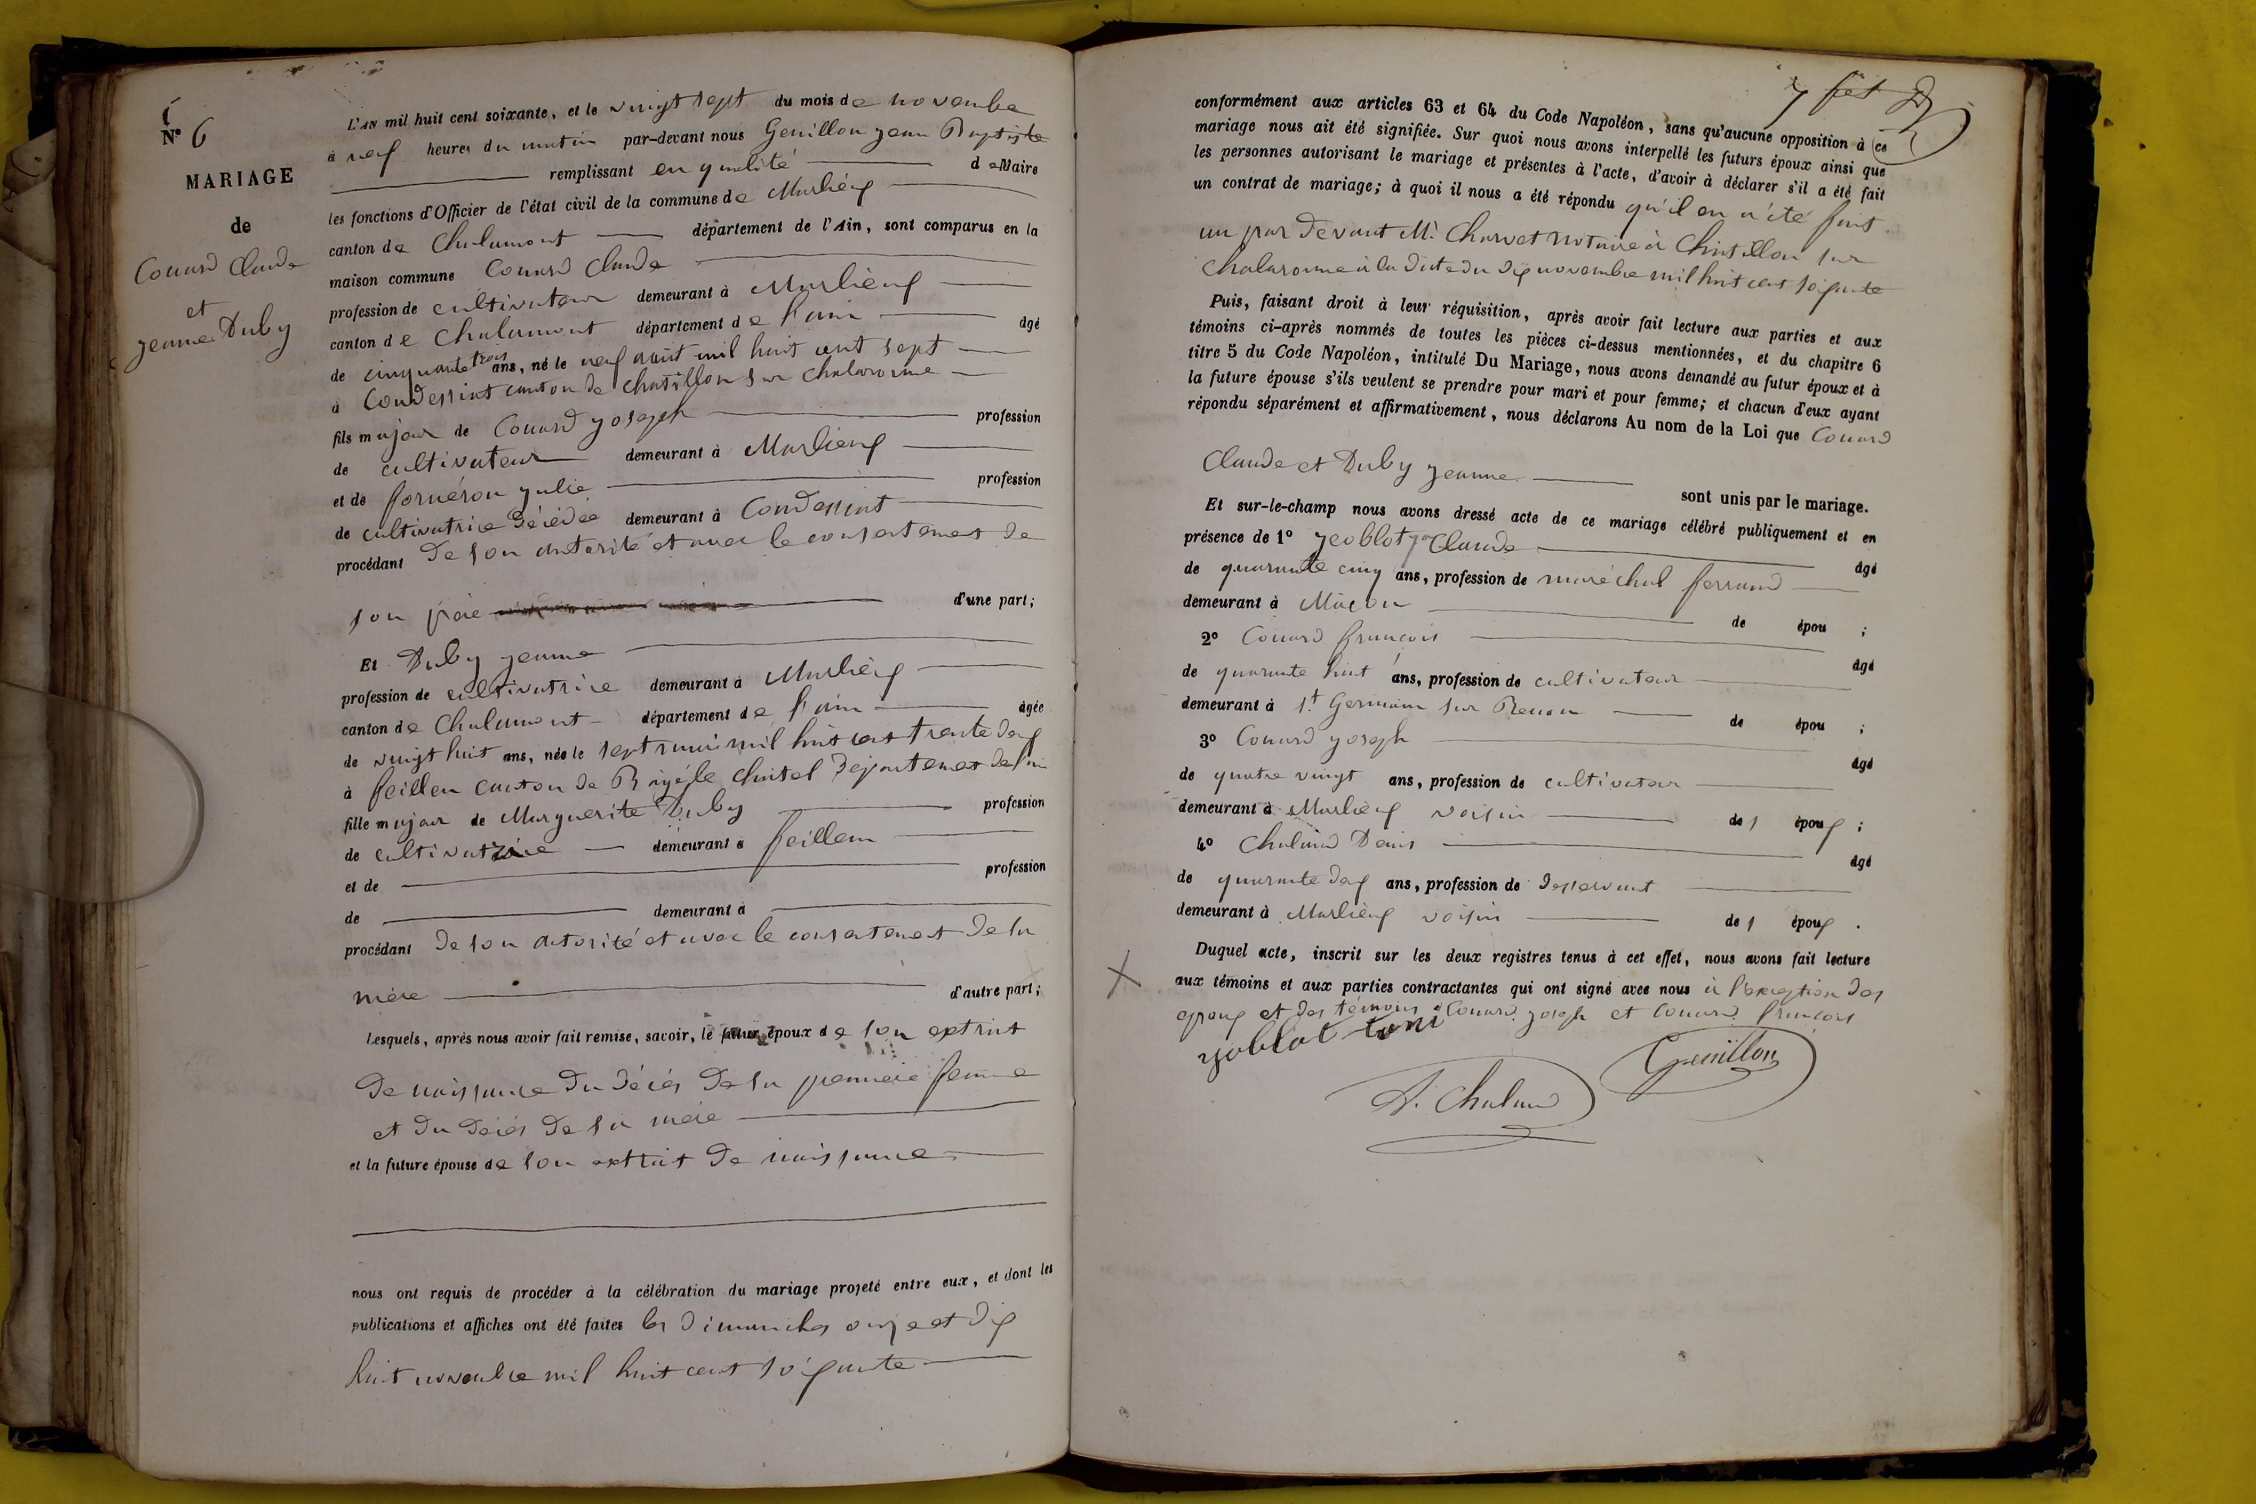 N° 6
MARIAGE
de
Couard Claude
et
jeanne Duby
L'AN mil huit cent soixante, et le vingt sept du mois de novembre
à neuf heures du matin par-devant nous Genillon jean Baptiste
remplissant en qualité de Maire
les fonctions d'Officier de l'état civil de la commune de Marlieux
canton de Chalamont département de l'Ain, sont comparus en la
maison commune Couard Claude
profession de cultivateur demeurant à Marlieux
canton de Chalamont département de l'ain âgé
de cinquante trois ans, né le neuf août mil huit cent sept
à Condessiat canton de Chatillon sur Chalaronne
fils majeur de Couard joseph profession
de cultivateur demeurant à Marlieux
et de forneron julie profession
de cultivatrice décédée demeurant à Condessiat
procédant de son autorité et avec le consentement de
son père d'une part;
Et Duby jeanne
profession de cultivatrice demeurant à Marlieux
canton de Chalamont département de l'ain âgée
de vingt huit ans, née le sept mai mil huit cent trente deux
à feillen canton de Bagé le Chatel Département de l'ain
fille majeur de Marguerite Duby profession
de cultivatrice demeurant à feillen
et de profession
de demeurant à
procédant de son autorité et avec le consentement de sa
mère d'autre part;
Lesquels, après nous avoir fait remise, savoir, le futur époux de son extrait
de naissance du décés de sa premiere femme
et du décés de sa mère
et la future épouse de son extrait de naissance
nous ont requis de procéder à la célébration du mariage projeté entre eux, et dont les
publications et affiches ont été faites les dimanches onze et dix
huit novembre mil huit cent soixante
conformément aux articles 63 et 64 du Code Napoléon, sans qu'aucune opposition à ce
mariage nous ait été signifiée. Sur quoi nous avons interpellé les futurs époux ainsi que
les personnes autorisant le mariage et présentes à l'acte, d'avoir à déclarer s'il a été fait
un contrat de mariage; à quoi il nous a été répondu qu'il en a été fait
un par devant Mr Charvet notaire à Chatillon sur
Chalaronne à la date du dix novembre mil huit cent soixante
Puis, faisant droit à leur réquisition, après avoir fait lecture aux parties et aux
témoins ci-après nommés de toutes les pièces ci-dessus mentionnées, et du chapitre 6
titre 5 du Code Napoléon, intitulé Du Mariage, nous avons demandé au futur époux et à
la future épouse s'ils veulent se prendre pour mari et pour femme; et chacun d'eux ayant
répondu séparément et affirmativement, nous déclarons Au nom de la Loi que Couard
Claude et Duby jeanne
sont unis par le mariage.
Et sur-le-champ nous avons dressé acte de ce mariage célébré publiquement et en
présence de 1° Claude âgé
de quarante cinq ans, profession de maréchal ferrand
demeurant à Mâcon de épou ;
2° Couard francois âgé
de quarante huit ans, profession de cultivateur
demeurant à St Germain sur Renon de épou ;
3° Couard joseph âgé
de quatre vingt ans, profession de cultivateur
demeurant à Marlieux voisin des époux ;
4° Chaland Denis âgé
de quarante deux ans, profession de desservant
demeurant à Marlieux voisin des époux .
Duquel acte, inscrit sur les deux registres tenus à cet effet, nous avons fait lecture
aux témoins et aux parties contractantes qui ont signé avec nous à l'exception des
epoux et des témoins Couard joseph et Couard francois
D. Chaland
Genillon